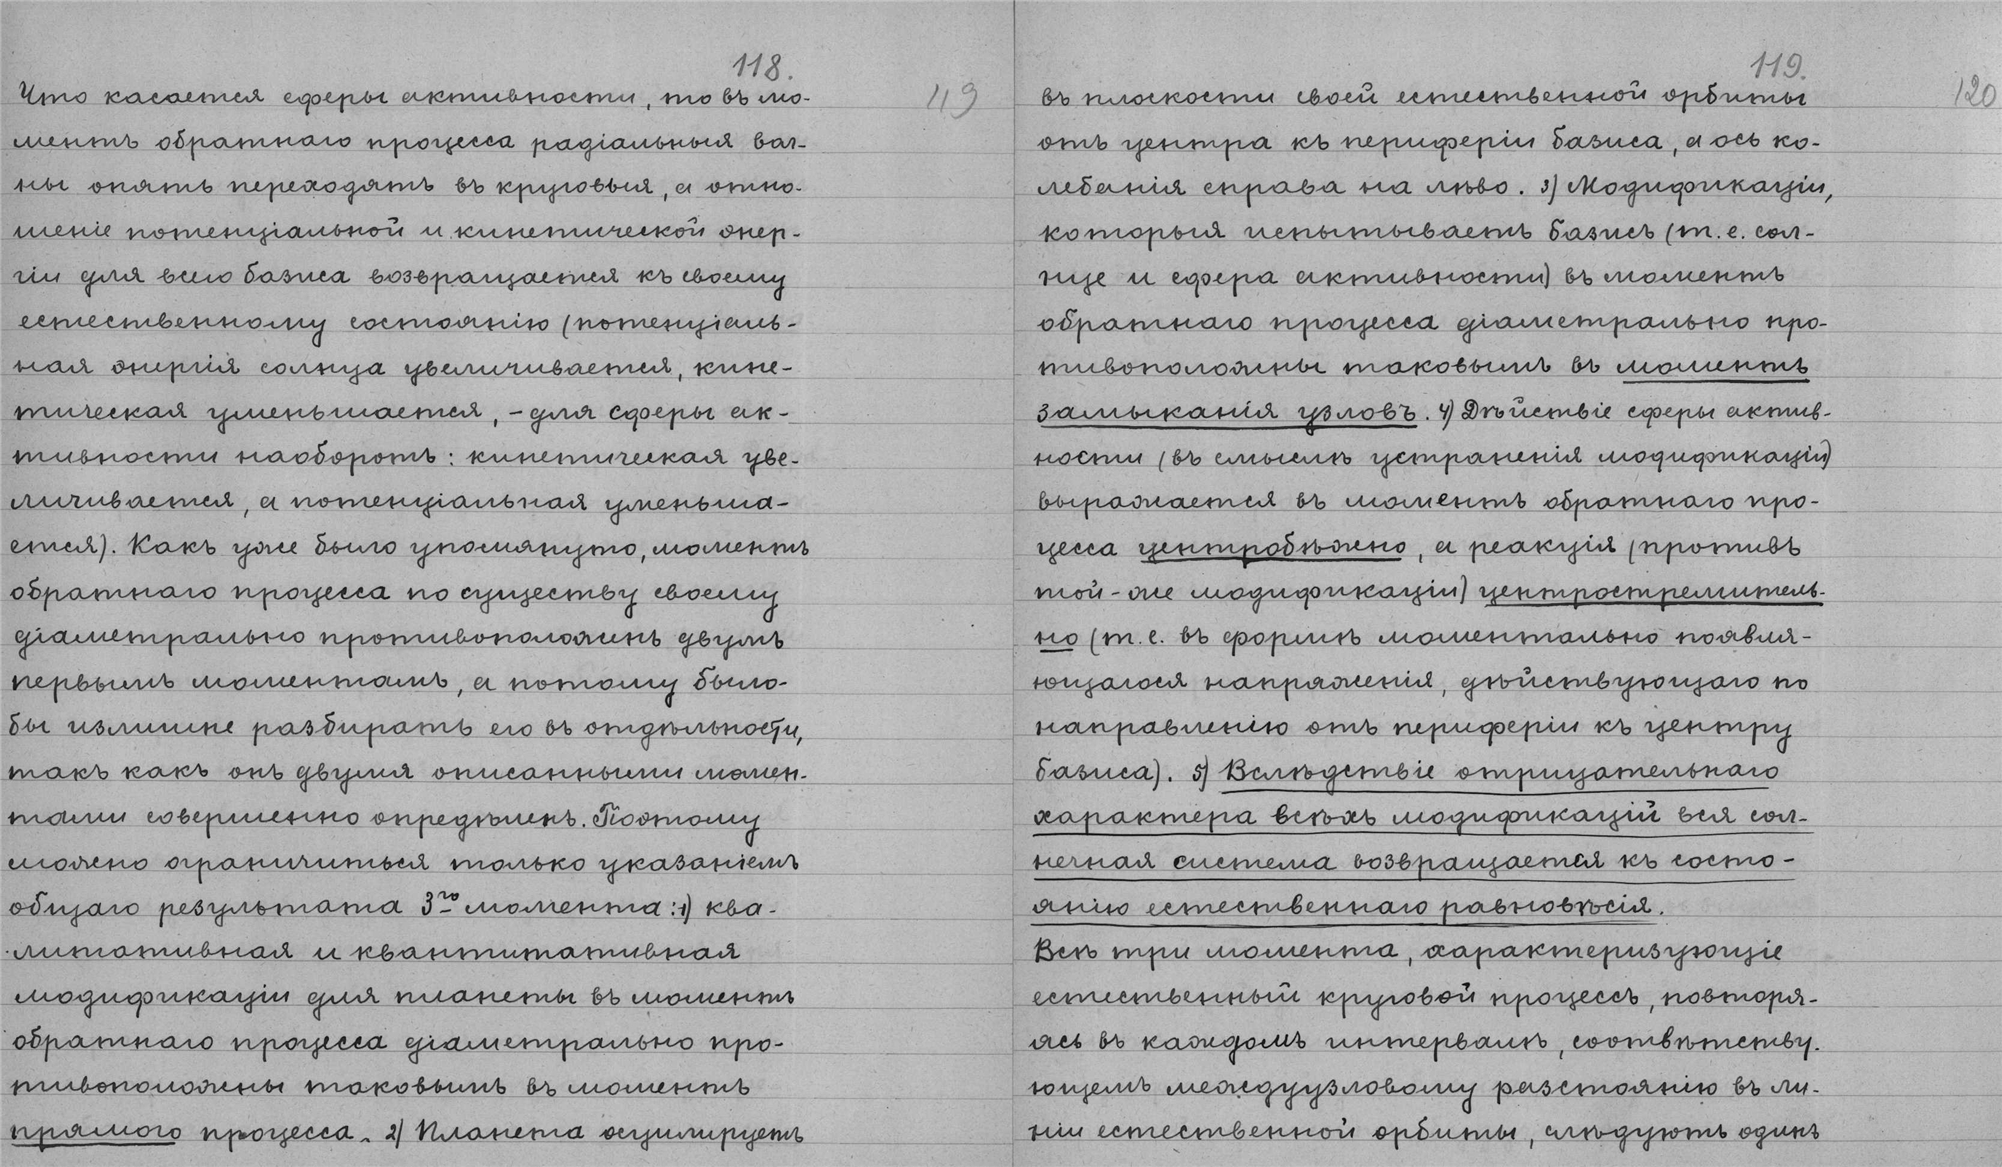 118.
119
Что касается сферы активности, то въ мо-
ментъ обратнаго процесса радіальныя вол-
ны опять переходятъ въ круговыя, а отно-
шеніе потенціальной и кинетической энер-
гіи для всего базиса возвращается къ своему
естественному состоянію (потенціаль-
ная энергія солнца увеличивается, кине-
тическая уменьшается, - для сферы ак-
тивности наоборотъ: кинетическая уве-
личивается, а потенціальная уменьша-
ется). Какъ уже было упомянуто, моментъ
обратнаго процесса по существу своему
діаметрально противоположенъ двумъ
первымъ моментамъ, а потому было-
бы излишне разбирать его въ отдѣльности,
такъ какъ онъ двумя описанными момен-
тами совершенно опредѣленъ. Поэтому
можно ограничиться только указаніемъ
общаго результата 3го момента: 1) ква-
литативная и квантитативная
модификаціи для планеты въ моментъ
обратнаго процесса діаметрально про-
тивоположны таковымъ въ моментъ
прямого процесса. 2) Планета осциллируетъ
119.
120
въ плоскости своей естественной орбиты
отъ центра къ периферіи базиса, а ось ко-
лебанія справа на лѣво. 3) Модификаціи,
которыя испытываетъ базисъ (т. е. сол-
нце и сфера активности) въ моментъ
обратнаго процесса діаметрально про-
тивоположны таковымъ въ моментъ
замыканія узловъ. 4) Дѣйствіе сферы актив-
ности (въ смыслѣ устраненія модификаціи)
выражается въ моментъ обратнаго про-
цесса центробѣжно, а реакція (противъ
той-же модификаціи) центростремитель-
но (т. е. въ формѣ моментально появля-
ющагося напряженія, дѣйствующаго по
направленію отъ периферіи къ центру
базиса). 5) Вслѣдствіе отрицательнаго
характера всѣхъ модификацій вся сол-
нечная система возвращается къ состо-
янію естественнаго равновѣсія.
Всѣ три момента, характеризующіе
естественный круговой процессъ, повторя-
ясь въ каждомъ интервалѣ, соотвѣтству-
ющемъ междуузловому разстоянію въ ли-
ніи естественной орбиты, слѣдуютъ одинъ